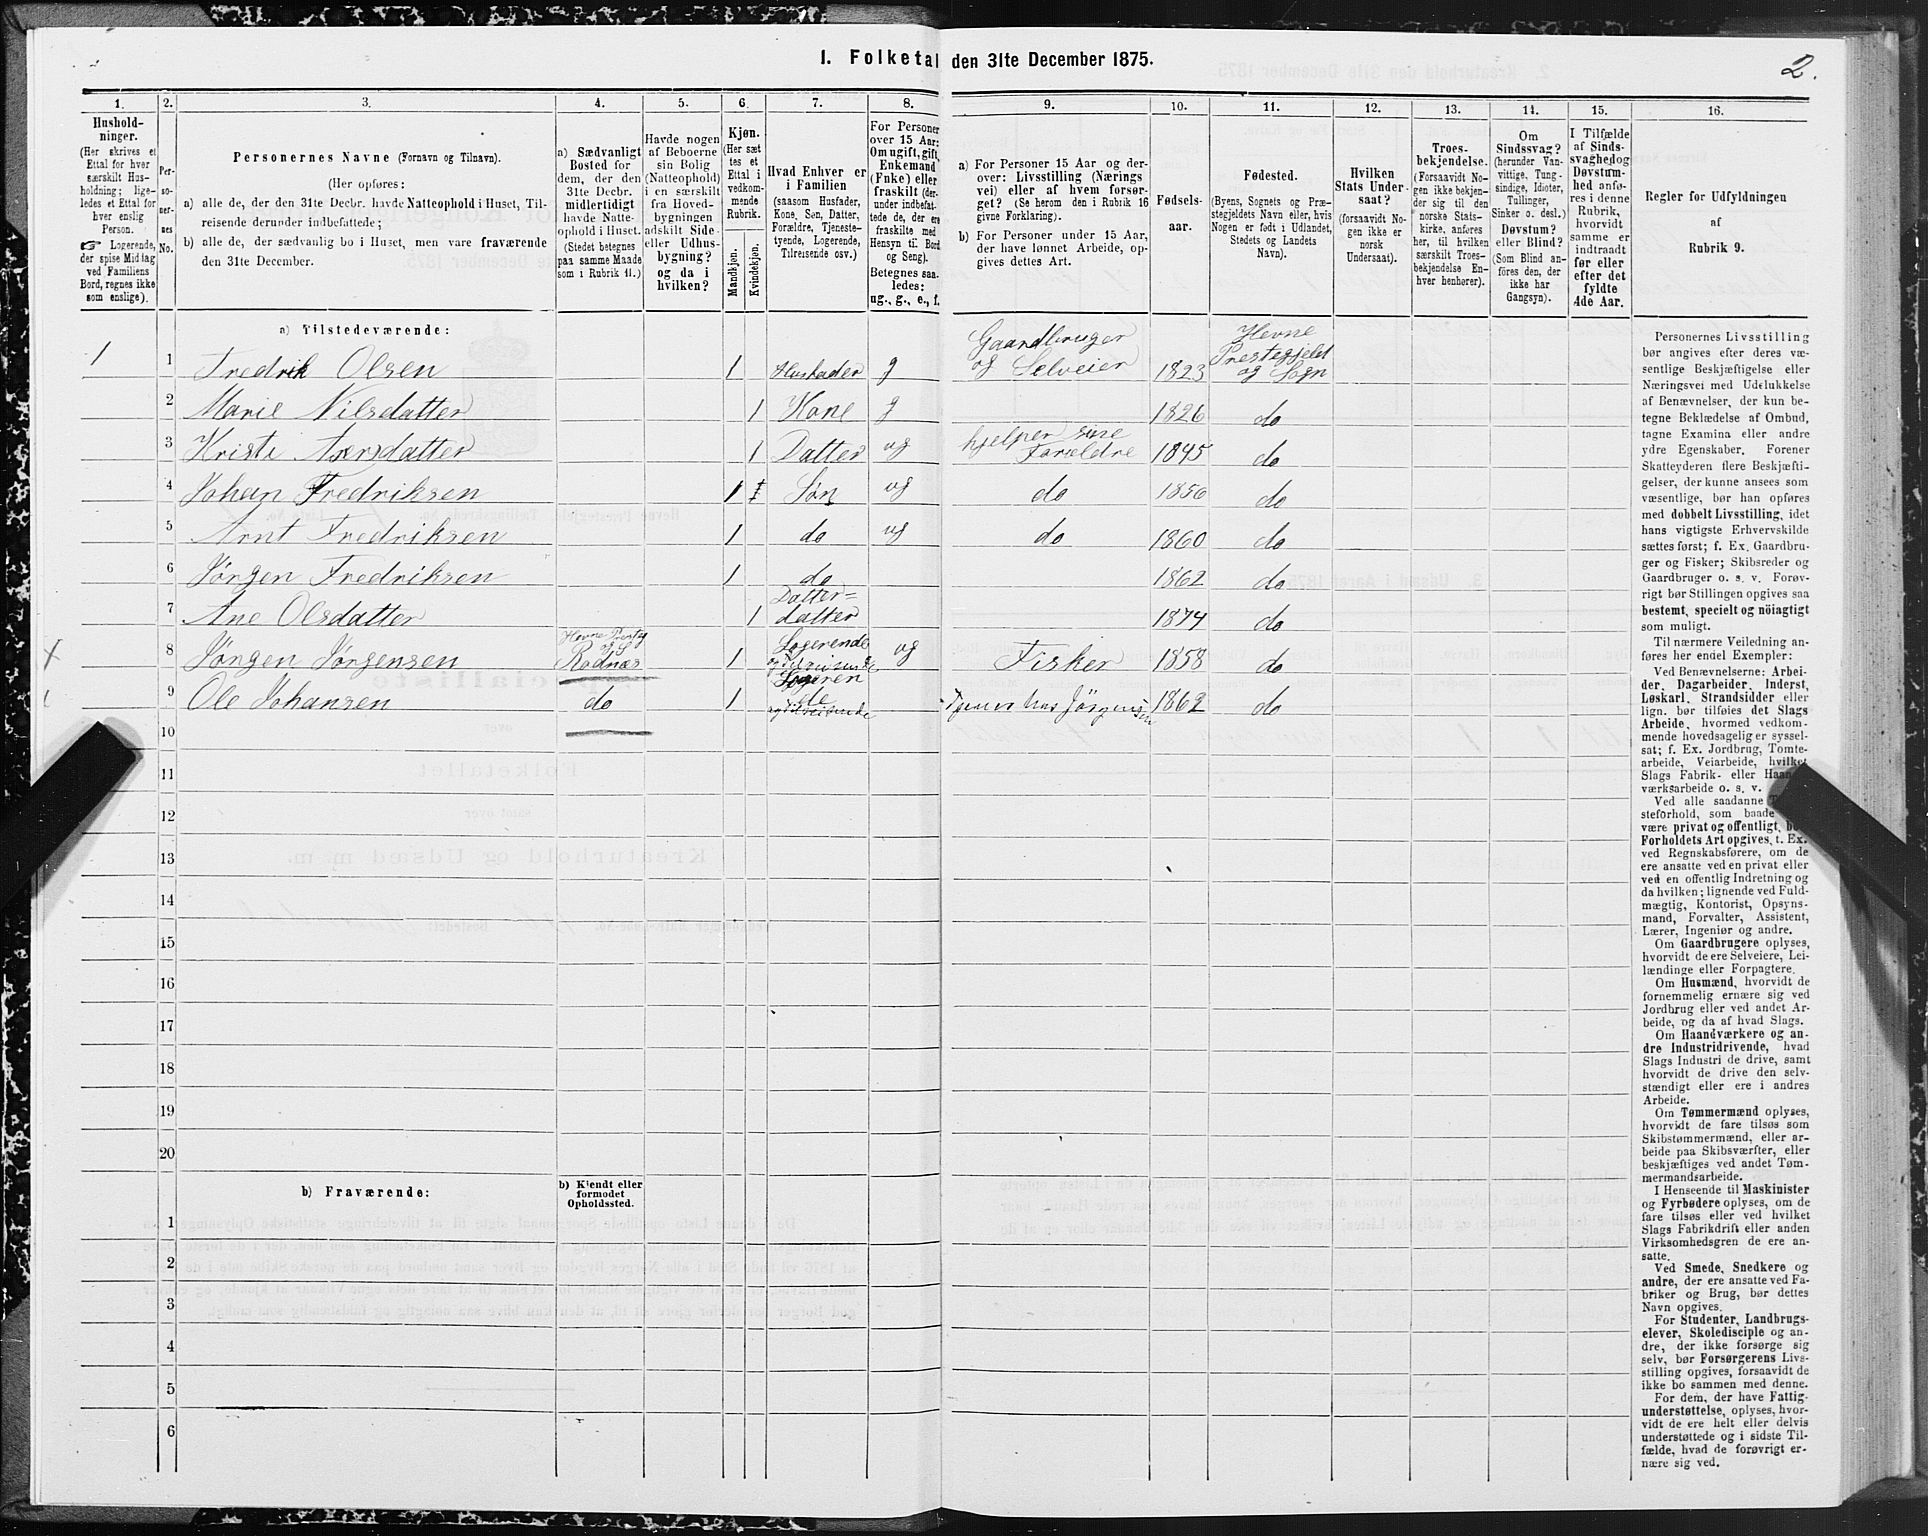 I. Folketal den 31te December 1875.
2.
1.
Hushold-
ninger.
(Her skrives et
Ettal for hver
særskilt Hus-
holdning; lige-
ledes et Ettal for
hver enslig
Person.
☞ Logerende,
der spise Middag
ved Familiens
Bord, regnes ikke
som enslige).
2.
Per-
so-
ner-
nes
No.
3.
Personernes Navne (Fornavn og Tilnavn).
(Her opføres:
a) alle de, der den 31te Decbr. havde Natteophold i Huset, Til-
reisende derunder indbefattede;
b) alle de, der sædvanlig bo i Huset, men vare fraværende
den 31te December.
4.
a) Sædvanligt
Bosted for
dem, der den
31te Decbr.
midlertidigt
havde Natte-
ophold i Huset.
(Stedet betegnes
paa samme Maade
som i Rubrik 11.)
5.
Havde nogen
af Beboerne
sin Bolig
(Natteophold)
i en særskilt
fra Hoved-
bygningen
adskilt Side-
eller Udhus-
bygning?
og da i
hvilken?
6.
Kjøn.
(Her sæt
tes et
Ettal i
vedkom-
mende
Rubrik.
Mandkjøn.
Kvindekjøn.
7.
Hvad Enhver er
i Familien
(saasom Husfader,
Kone, Søn, Datter,
Forældre, Tjeneste-
tyende, Logerende,
Tilreisende osv.)
8.
For Personer
over 15 Aar:
Om ugift, gift,
Enkemand
(Enke) eller
fraskilt (der-
under indbefat-
tede de, der ere
fraskilte med
Hensyn til Bord
og Seng).
Betegnes saa-
ledes:
ug., g., e., f.
9.
a) For Personer 15 Aar og der-
over: Livsstilling (Nærings
vei) eller af hvem forsør-
get? (Se herom den i Rubrik 16
givne Forklaring).
b) For Personer under 15 Aar,
der have lønnet Arbeide, op-
gives dettes Art.
10.
Fødsels-
aar.
11.
Fødested.
(Byens, Sognets og Præ-
stegjeldets Navn eller, hvis
Nogen er født i Udlandet,
Stedets og Landets
Navn).
12.
Hvilken
Stats Under-
saat?
(forsaavidt No-
gen ikke er
norsk
Undersaat).
13.
Troes-
bekjendelse.
(Forsaavidt No-
gen ikke bekjen-
der sig til den
norske Stats-
kirke, anføres
her, til hvilken
særskilt Troes-
bekjendelse En-
hver henhører).
14.
Om
Sindssvag?
(herunder Van-
vittige, Tung-
sindige, Idioter,
Tullinger,
Sinker o. desl.)
Døvstum?
eller Blind?
(Som Blind an-
føres den, der
ikke har
Gangsyn).
15.
I Tilfælde
af Sinds-
svaghed og
Døvstum-
hed anfø-
res i denne
Rubrik,
hvorvidt
samme er
indtraadt
før eller
efter det
fyldte
4de Aar.
16.
Regler for Udfyldningen
af
Rubrik 9.
a) Tilstedeværende:
1 1 Fredrik Olsen 1 Husfader g Gaardbruger og Selveier 1823 Hevne Prestegjeld og Sogn
2 Marie Nilsdatter 1 Kone g 1826 do
3 Kristi datter 1 Datter ug hjelper sine Forældre 1845 do
4 Johan Fredriksen 1 Søn ug do 1856 do
5 Arnt Fredriksen 1 do ug do 1860 do
6 Jørgen Fredriksen 1 do 1862 do
7 Ane Olsdatter 1 Datter= datter 1874 do
8 Jørgen Jørgensen Rødnæs 1 Logerende og Tilreisende ug Fisker 1858 do
9 Ole Johansen do 1 Logerende og Tilreisende Tjener hos Jørgensen 1862 do
10
11
12
13
14
15
16
17
18
19
20
b) Fraværende:
b) Kjendt eller
formodet
Opholdssted.
1
2
3
4
5
6
Personernes Livsstilling
bør angives efter deres væ-
sentlige Beskjæftigelse eller
Næringsvei med Udelukkelse
af Benævnelser, der kun be-
tegne Beklædelse af Ombud,
tagne Examina eller andre
ydre Egenskaber. Forener
Skatteyderen flere Beskjæfti-
gelser, der kunne ansees som
væsentlige, bør han opføres
med dobbelt Livsstilling, idet
hans vigtigste Erhvervskilde
sættes først; f. Ex. Gaardbru-
ger og Fisker; Skibsreder og
Gaardbruger o. s. v. Forøv-
rigt bør Stillingen opgives saa
bestemt, specielt og nöiagtigt
som muligt.
Til nærmere Veiledning an-
føres her endel Exempler:
Ved Benævnelserne: Arbei-
der, Dagarbeider, Inderst,
Løskarl, Strandsidder eller
lign. bør tilføies det Slags
Arbeide, hvormed vedkom-
mende hovedsagelig er syssel-
sat; f. Ex. Jordbrug, Tomte-
arbeide, Veiarbeide, hvilket
Slags Fabrik- eller Haand-
værksarbeide o. s. v.
Ved alle saadanne
steforhold, som baade
være privat og offentligt, bør
Forholdets Art opgives, t. Ex.
ved Regnskabsførere, om de
ere ansatte ved en privat eller
ved en offentlig Indretning og
da hvilken; lignende ved Fuld-
mægtig, Kontorist, Opsyns-
mand, Forvalter, Assistent,
Lærer, Ingeniør og andre.
Om Gaardbrugere oplyses,
hvorvidt de ere Selveiere, Lei-
lændinge eller Forpagtere.
Om Husmænd, hvorvidt de
fornemmelig ernære sig ved
Jordbrug eller ved andet Ar-
beide, og da af hvad Slags.
Om Haandværkere og an-
dre Industridrivende, hvad
Slags Industri de drive, samt
hvorvidt de drive den selv-
stændigt eller ere i andres
Arbeide.
Om Tømmermænd oplyses,
hvorvidt de fare tilsøs som
Skibstømmermænd, eller ar-
beide paa Skibsværfter, eller
beskjæftiges ved andet Tøm-
mermandsarbeide.
I Henseende til Maskinister
og Fyrbødere oplyses, om de
fare tilsøs eller ved hvilket
Slags Fabrikdrift eller anden
Virksomhedsgren de ere an-
satte.
Ved Smede, Snedkere og
andre, der ere ansatte ved Fa-
briker og Brug, bør dettes
Navn opgives.
For Studenter, Landbrugs-
elever, Skoledisciple og an-
dre, der ikke forsørge sig
selv, bør Forsørgerens Livs-
stilling opgives, forsaavidt de
ikke bo sammen med denne.
For dem, der have Fattig-
understøttelse, oplyses, hvor-
vidt de ere helt eller delvis
understøttede og i sidste Til-
fælde, hvad de forøvrigt er-
nære sig ved.